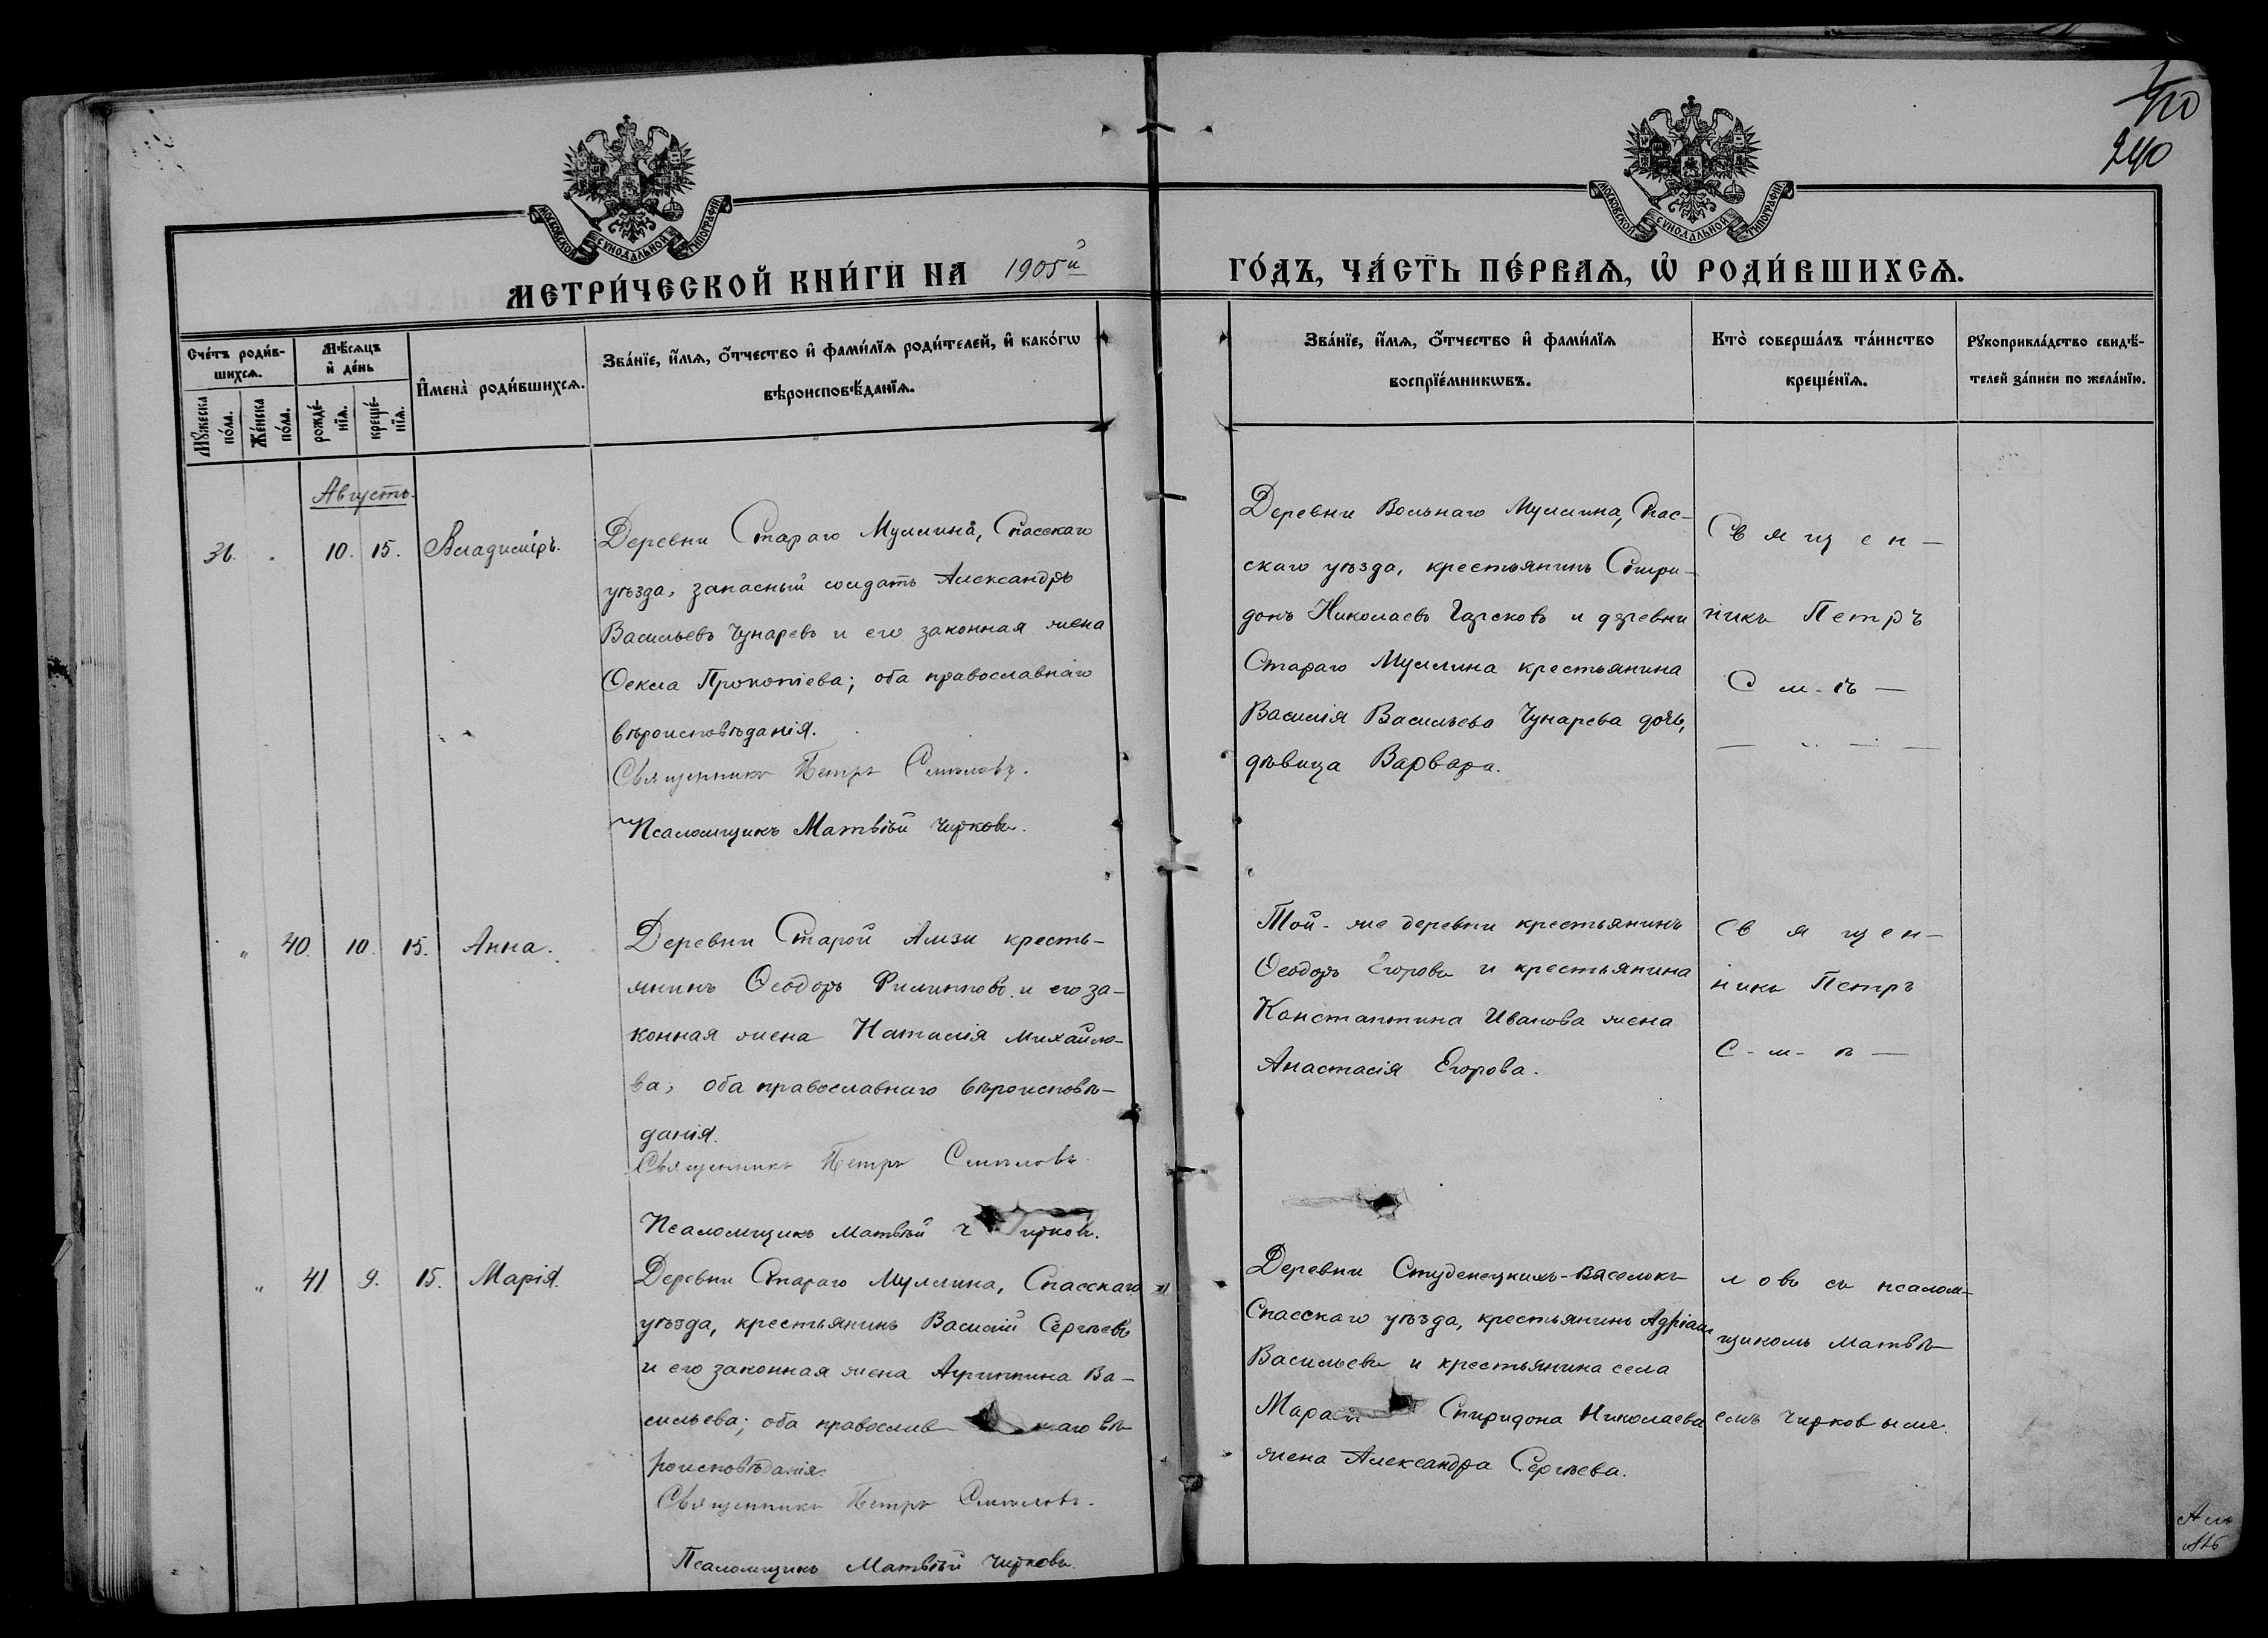 240
МОСКОВСКОЙ СѴНОДАЛЬНОЙ ТИПОГРАФІИ
МОСКОВСКОЙ СѴНОДАЛЬНОЙ ТИПОГРАФІИ
МЕТРИ́ЧЕСКОЙ КНИ́ГИ НА 1905й
ГО́ДЪ, ЧА́СТЬ ПЕ́РВАѦ, Ѿ РОДИ́ВШИХСѦ.
Сче́тъ роди́в-
шихсѧ.
Мꙋ́жеска
по́ла.
Же́нска
по́ла.
Мѣ́сѧцъ
и҆ де́нь
рожде́-
нїѧ.
креще́-
нїѧ.
И҆мена̀ роди́вшихсѧ.
Зва́нїе, и҆́мѧ, ѻ҆́тчество и҆ фами́лїѧ роди́телей, и҆ како́гѡ
вѣроисповѣ́данїѧ.
Зва́нїе, и҆́мѧ, ѻ҆́тчество и҆ фами́лїѧ
воспрїе́мникѡвъ.
Кто̀ соверша́лъ та́инство
креще́нїѧ.
Рꙋкоприкла́дство свидѣ́-
телей за́писи по жела́нїю.
Августъ.
31. 10. 15. Владиміръ.
Деревни Стараго Муллина, Спасскаго
уѣзда, запасный солдатъ Александръ
Васильевъ Чунаревъ и его законная жена
Ѳекла Прокопіева; оба православнаго
вѣроисповѣданія.
Священникъ Петръ Смѣловъ.
Псаломщикъ Матвѣй Чирковъ.
Деревни Вольнаго Муллина, Спас-
скаго уѣзда, крестьянинъ Спири-
донъ Николаевъ и деревни
Стараго Муллина крестьянина
Василія Васильева Чунарева дочь,
дѣвица Варвара.
Священ-
никъ Петръ
Смѣ-
" 40. 10. 15. Анна.
Деревни Старой Алзи кресть-
янинъ Ѳеодоръ Филипповъ и его за-
конная жена Наталія Михайло-
ва, оба православнаго вѣроисповѣ-
данія.
Священникъ Петръ Смѣловъ.
Псаломщикъ Матвѣй Чирковъ.
Той-же деревни крестьянинъ
Ѳеодоръ Егоровъ и крестьянина
Константина Иванова жена
Анастасія Егорова.
Священ-
никъ Петръ
С-м-ѣ-
" 41. 9. 15. Марія.
Деревни Стараго Муллина, Спасскаго
уѣзда, крестьянинъ Василій Сергѣевъ
и его законная жена Агриппина Ва-
сильева; оба православнаго вѣ-
роисповѣданія.
Священникъ Петръ Смѣловъ.
Псаломщикъ Матвѣй Чирковъ.
Деревни Студенецкихъ-Выселокъ
Спасскаго уѣзда, крестьянинъ Адріанъ
Васильевъ и крестьянина села
Спиридона Николаева
жена Александра Сергѣева.
ловъ съ псалом-
щикомъ Матвѣ-
емъ Чирковымъ.